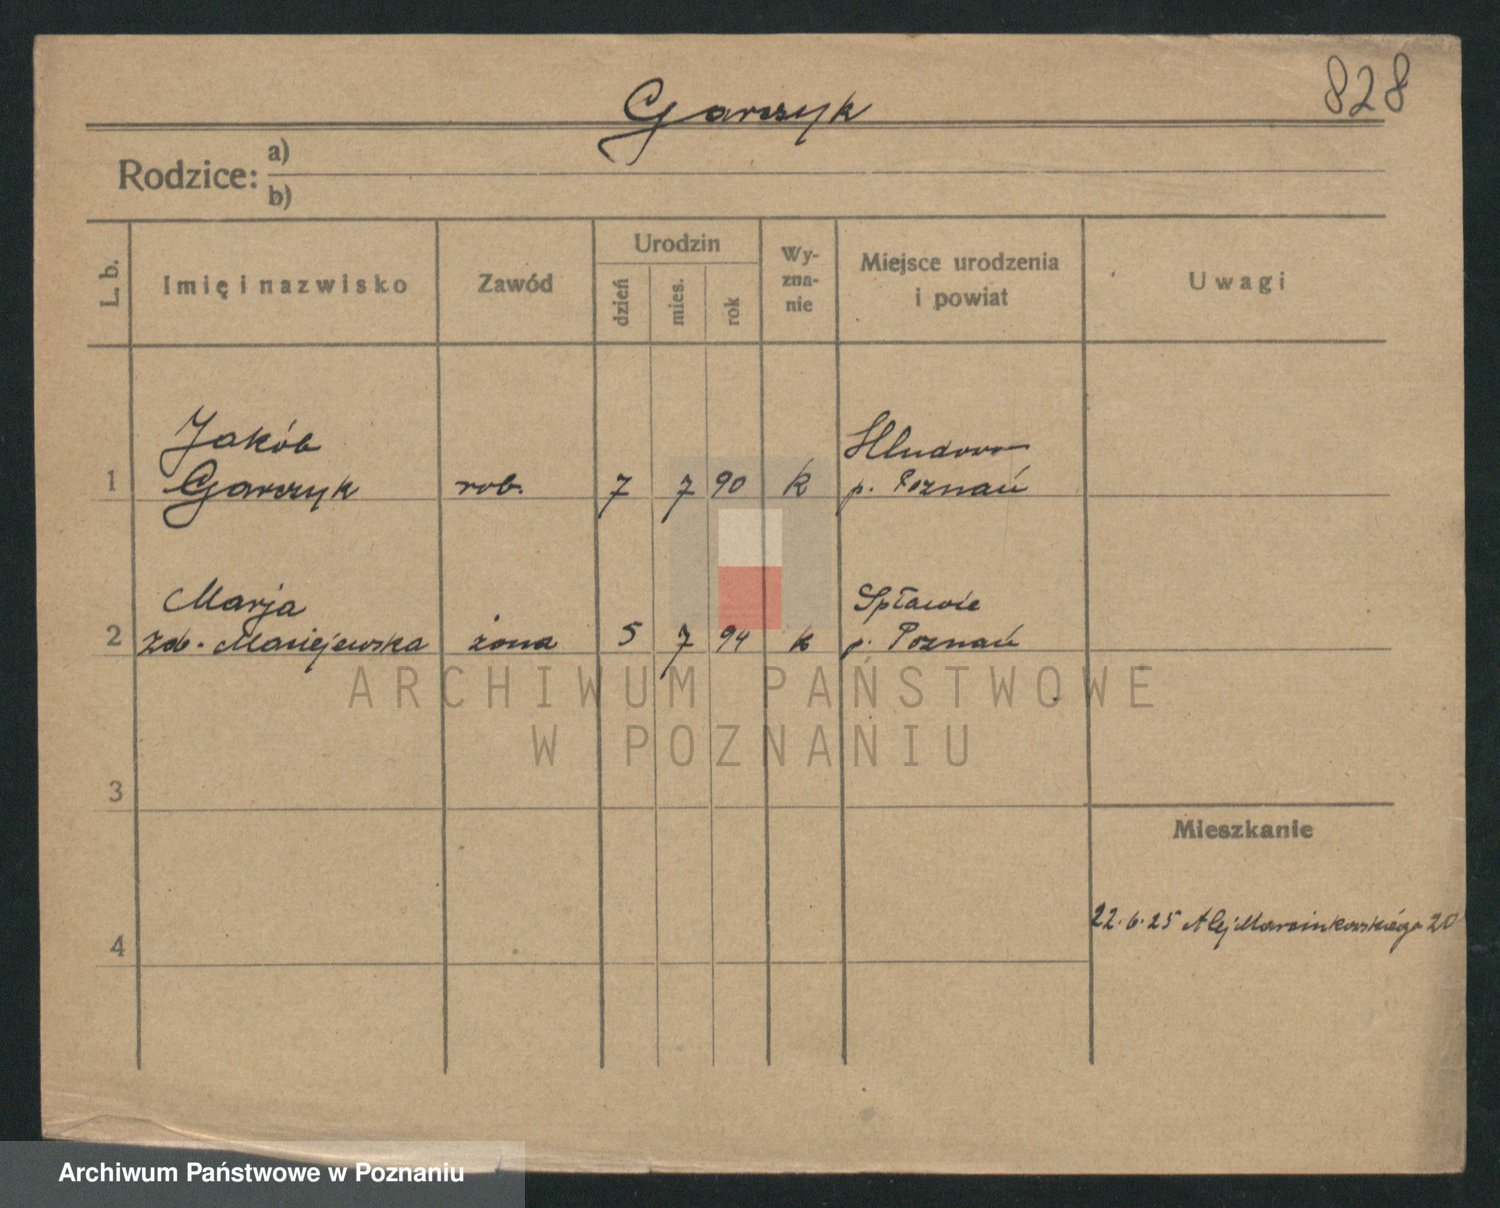 828
Garczyk
Rodzice:
a)
b)
L. b.
Imię i nazwisko
Zawód
Urodzin
dzień
mies.
rok
Wy-
zna-
nie
Miejsce urodzenia
i powiat
Uwagi
1
Jakób
Garczyk
rob.
7
7
90
k
p. Poznań
2
Marja
zdb. Maciejewska
żona
5
7
94
k
Spławie
p. Poznań
3
4
Mieszkanie
22.6.25 Alej Marcinkowskiego 20
ARCHIWUM PAŃSTWOWE
W POZNANIU
Archiwum Państwowe w Poznaniu